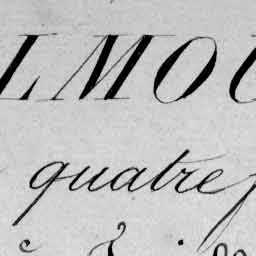 LMOU
quatre